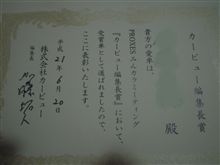 カービュー編集長賞
殿
貴方の愛車は、
PROXESみんカラミーティング
『カービュー編集長賞』において、
受賞車として選ばれましたので、
ここに表彰いたします。
平成21年6月20日
株式会社カービュー
編集長